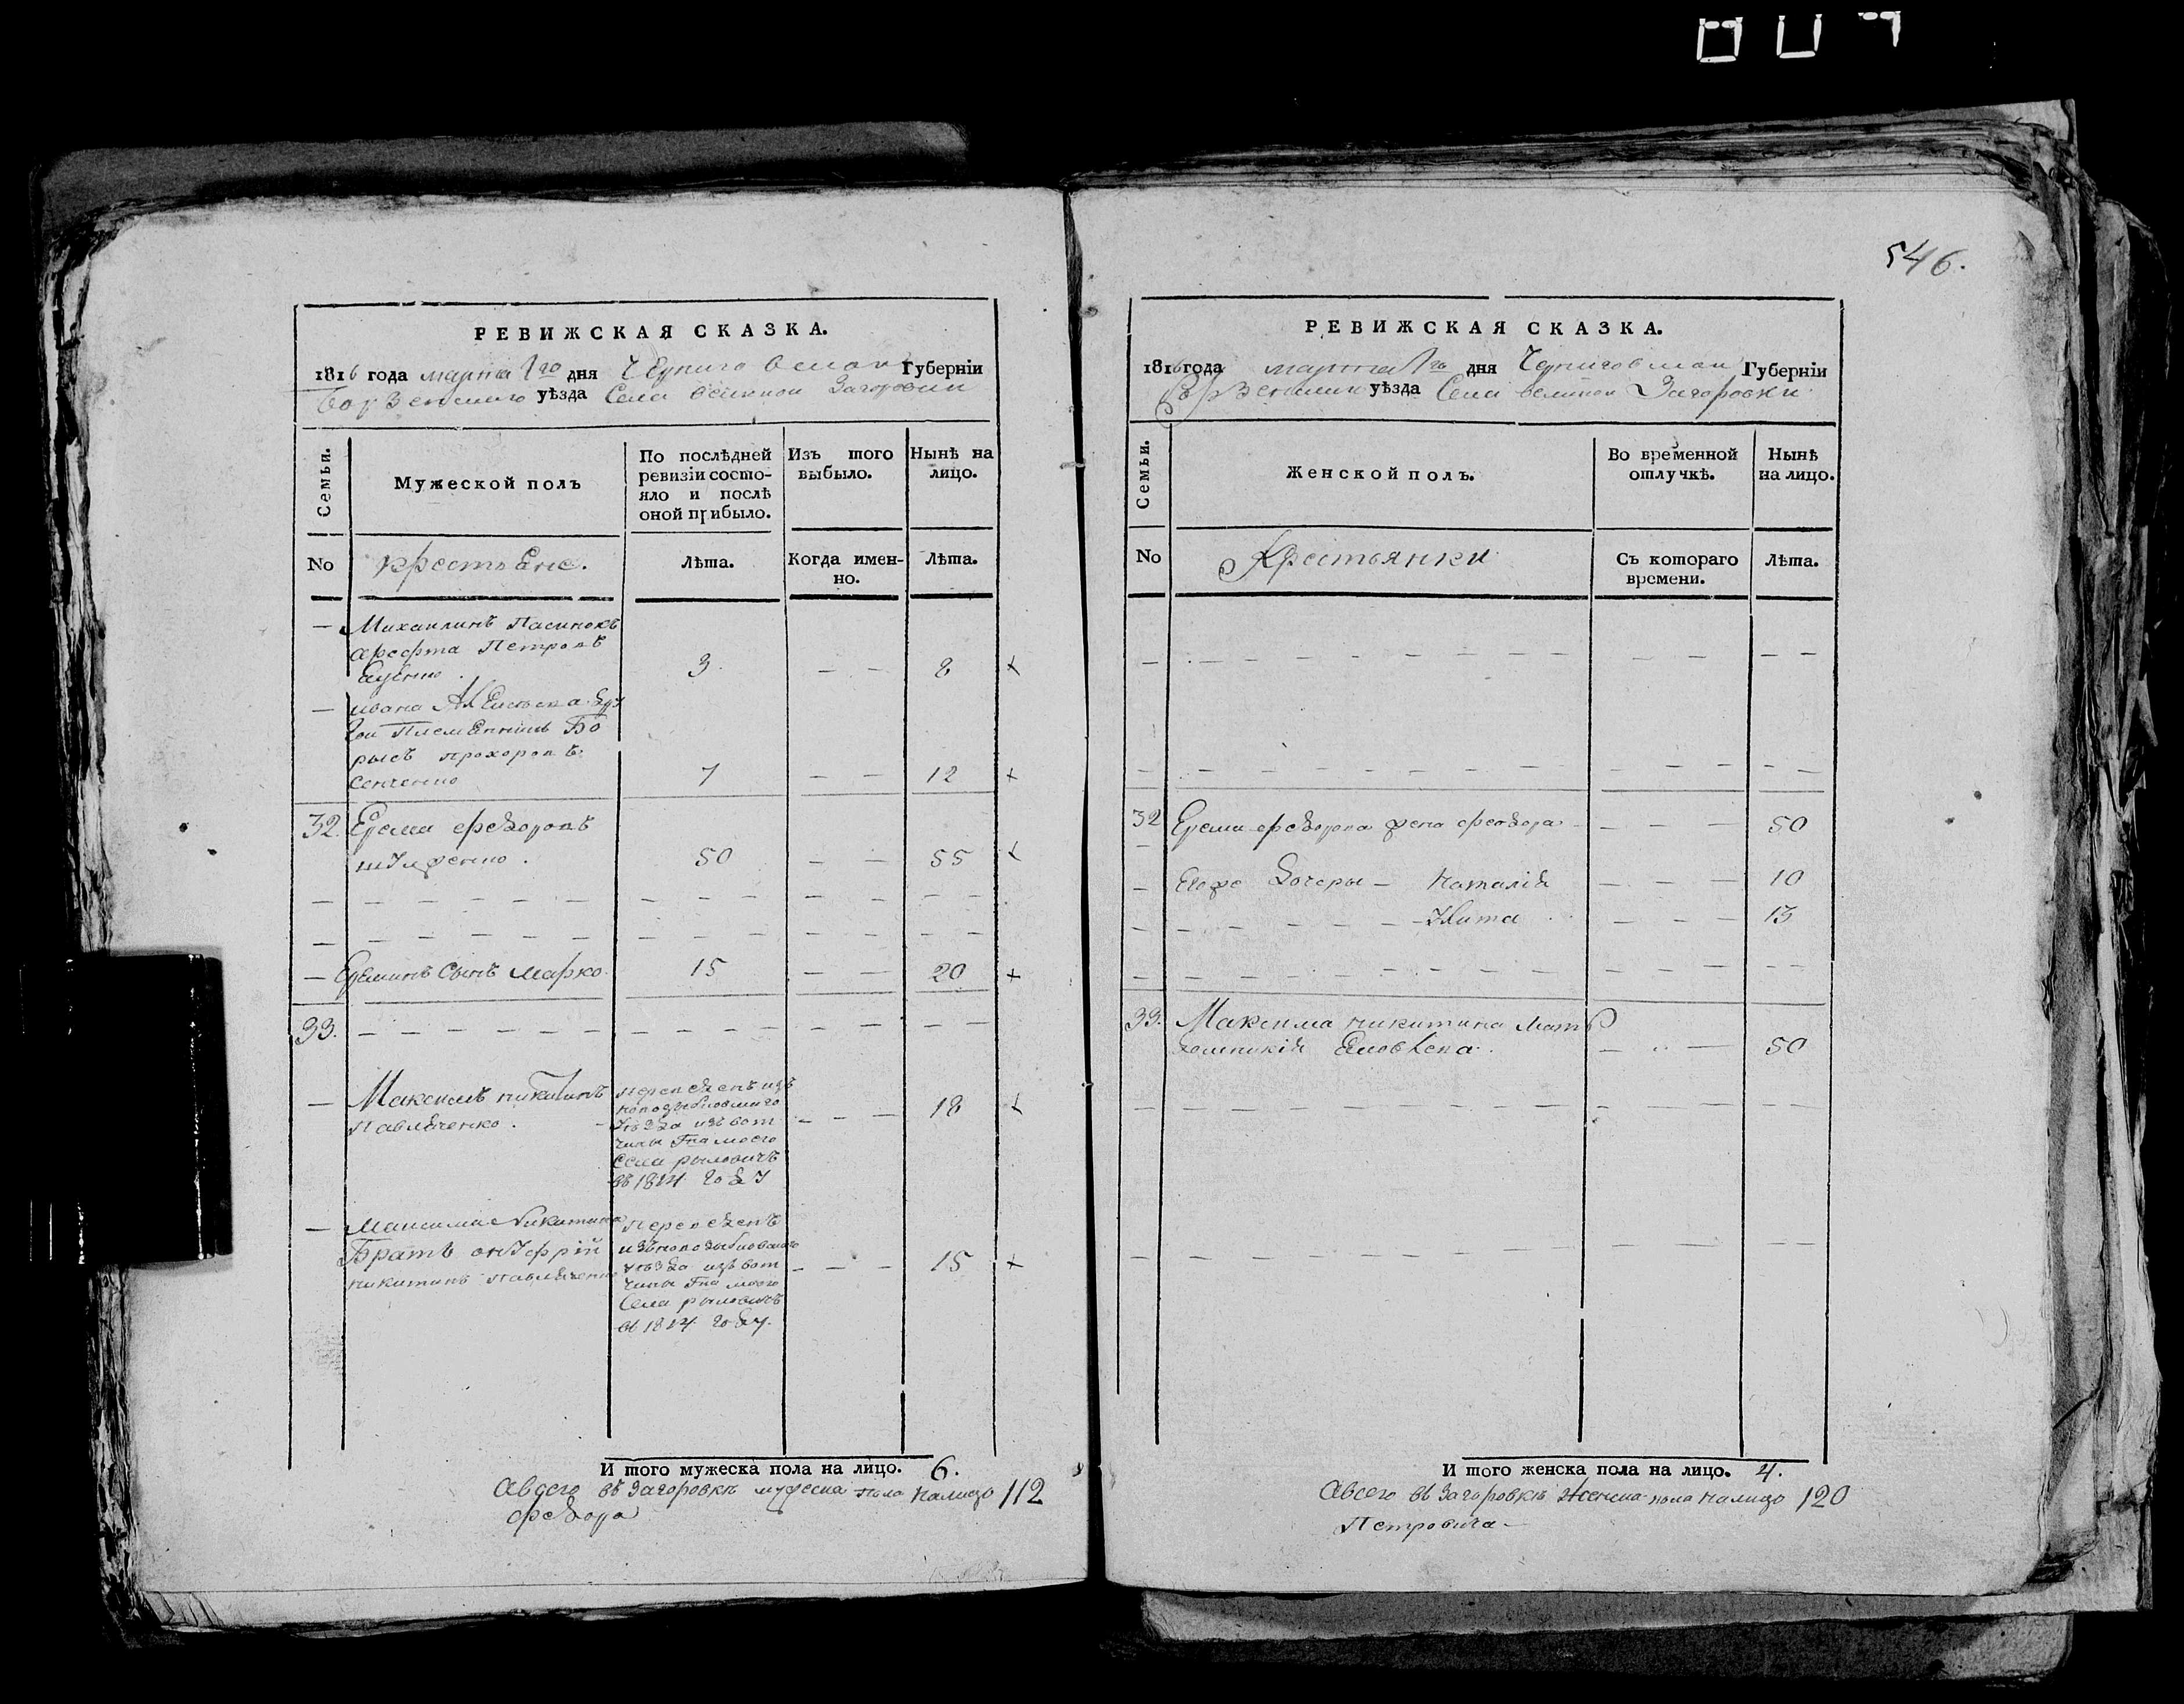 546.
РЕВИЖСКАЯ СКАЗКА.
1816 года марта 1го дня Черниговской Губерніи
Борзенского уѣзда Села великой Загоровки
Семьи.
Мужеской полъ
По послѣдней
ревизіи состо-
яло и послѣ
оной прибыло.
Изъ того
выбыло.
Нынѣ на
лицо.
No
крестьяне.
Лѣта.
Когда имен-
но.
Лѣта.
— Михаилинъ Пасинокъ
арефта Петровъ
3. — — 8 +
— ивана Алексѣева дру
гой Племенникъ Бо
рысъ прохоровъ
Сенченко 7 — — 12 +
32. Ерема федоровъ
50 — — 55 +
— Ереминъ Сынъ Марко 15 — — 20 +
33.
— Максимъ никитинъ
Павлюченко.
переведенъ изъ
новозыбковского
уѣзда изъ вот
чины Гна моего
Села рыловичъ
въ 1814 году
— — 18 +
— Максима Никитина
Братъ онуфрій
никитинъ Павлюченко
Переведенъ
изъ новозыбковского
уѣзда изъ вот
чины Гна моего
Села рыловичъ
въ 1814 году.
— — — 15 +
И того мужеска пола на лицо. 6.
Авсего въ Загоровкѣ мужеска пола налицо 112
федора
РЕВИЖСКАЯ СКАЗКА.
1816 года марта 1го дня Черниговской Губерніи
Борзенского уѣзда Села великой Загоровки
Семьи.
Женской полъ.
Во временной
отлучкѣ.
Нынѣ
на лицо.
No
Крестьянки
Съ котораго
времени.
Лѣта.
32 Еремы федорова жена феодора — — — 50
— Егоже дочеры — Наталія — — — 10
Улита — — — 13
33. Максима никитина мать
Яковлева. — — 50
И того женска пола на лицо. 4.
Авсего въ Загоровкѣ женска пола налицо 120
Петровича